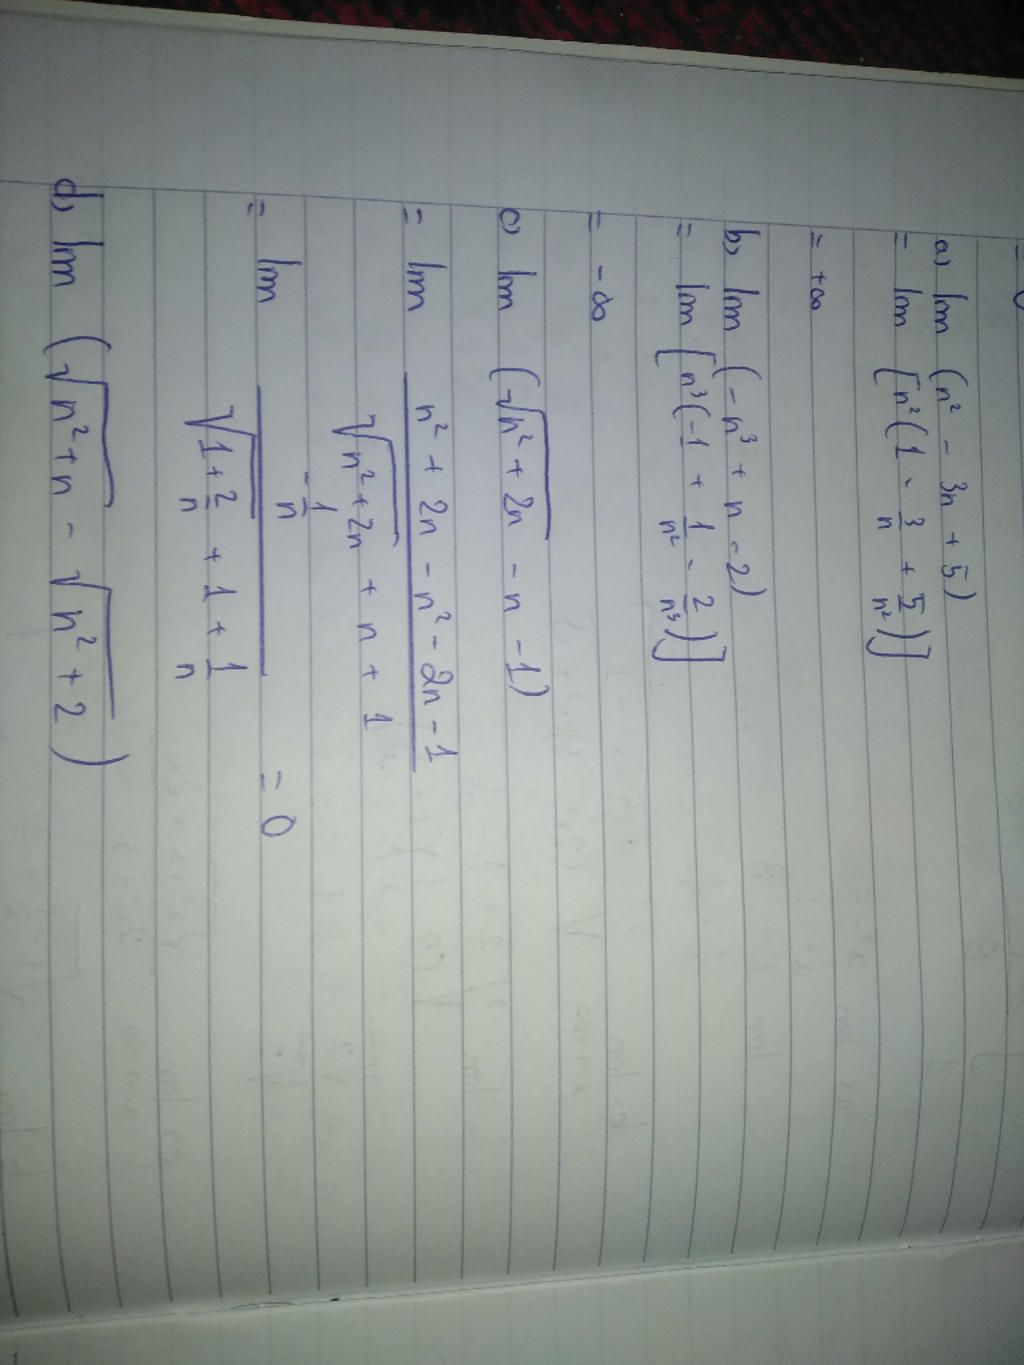 a) lim (n² - 3n + 5)
= lim [n²(1 - 3/n + 5/n²)]
= +∞
b) lim (-n³ + n - 2)
= lim [n³(-1 + 1/n² - 2/n³)]
= -∞
c) lim (√(n² + 2n) - n - 1)
= lim (n² + 2n - n² - 2n - 1)/(√(n² + 2n) + n + 1)
= lim (-1/n)/(√(1 + 2/n) + 1 + 1/n) = 0
d) lim (√(n² + n) - √(n² + 2))